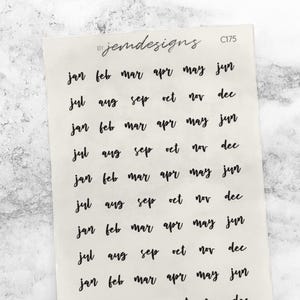 jemdesigns C175
jan feb mar apr may jun
jul aug sep oct nov dec
jan feb mar apr may jun
jul aug sep oct nov dec
jan feb mar apr may jun
jul aug sep oct nov dec
jan feb mar apr may jun
jul aug sep oct nov dec
jan feb mar apr may jun